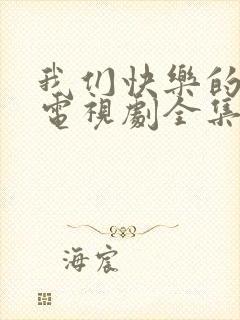 我们快樂的
電視劇全集
海宸